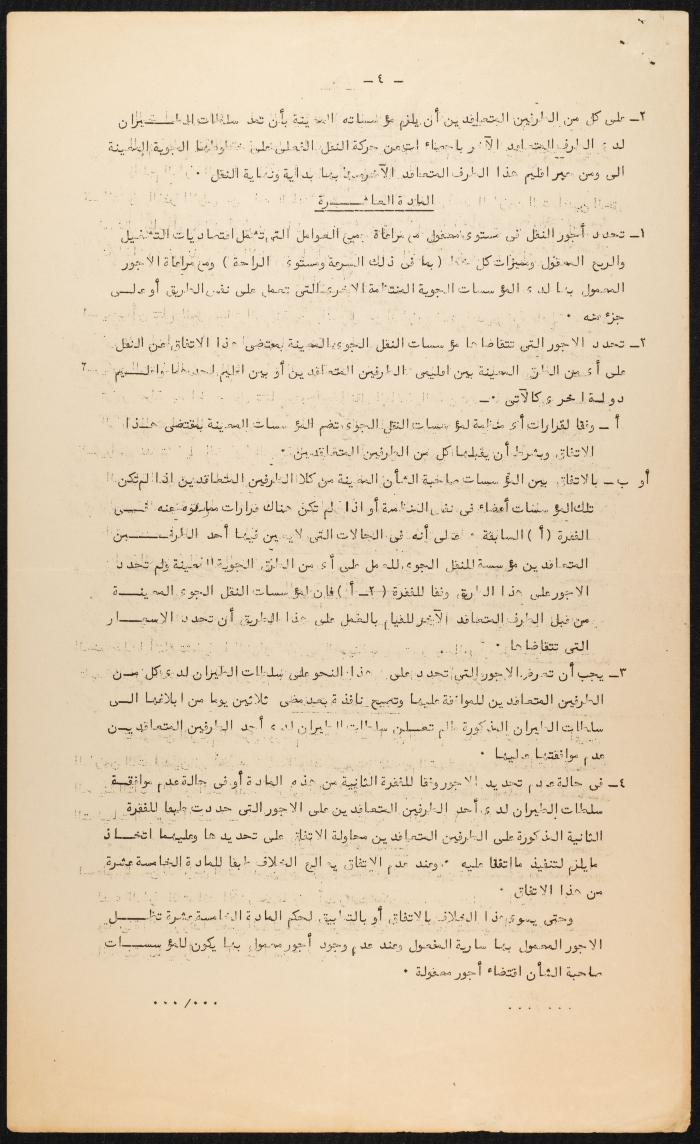 – ٤ –
٢ـ على كل من الطرفين المتعاقدين أن يلزم مؤسساته المعينة بأن تمد سلطات الطـــيران
لدى الطرف المتعاقد الآخر باحصاءات عن حركة النقل الفعلى على خطوطها الجوية المعينة
الى ومن عبر اقليم هذا الطرف المتعاقد الآخر مبينا بها بداية ونهاية النقل ٠
المادة العاشـــرة
١ـ تحدد أجور النقل فى مستوى معقول مع مراعاة جميع العوامل التى تشمل اقتصاديات التشغيل
والربح المعقول ومميزات كل خط ( بما فى ذلك السرعة ومستوى الراحة ) ومع مراعاة الاجور
المعمول بها لدى المؤسسات الجوية المنتظمة الاخرى التى تعمل على نفس الطريق أو علـــى
جزء منه ٠
٢ـ تحدد الاجور التى تتقاضاها مؤسسات النقل الجوى المعينة بمقتضى هذا الاتفاق عن النقل
على أى من الطرق المعينة بين اقليمى الطرفين المتعاقدين أو بين اقليم احدهما واقلـــيم
دولة اخرى كالآتى ٠ـ
أ ـ وفقا لقرارات أى منظمة لمؤسسات النقل الجوى تضم المؤسسات المعينة بمقتضى هــذا
الاتفاق وبشرط أن يقبلها كل من الطرفين المتعاقدين ٠
أو ب ـ بالاتفاق بين المؤسسات صاحبة الشأن المعينة من كلا الطرفين المتعاقدين اذا لم تكن
تلك المؤسسات أعضاء فى نفس المنظمة أو اذا لم تكن هناك قرارات مما نوه عنه فـــى
الفقرة ( أ ) السابقة ٠ على أنه فى الحالات التى لايعين فيها أحد الطرفـــين
المتعاقدين مؤسسة للنقل الجوى للعمل على أى من الطرق الجوية المعينة ولم تحدد
الاجور على هذا الطريق وفقا للفقرة ( ٢ـ أ ) فان لمؤسسات النقل الجوى المعينـــة
من قبل الطرف المتعاقد الآخر للقيام بالعمل على هذا الطريق أن تحدد الاسعـــار
التى تتقاضاها ٠
٣ـ يجب أن تعرض الاجور التى تحدد على هذا النحو على سلطات الطيران لدى كل مــن
الطرفين المتعاقدين للموافقة عليها وتصبح نافذة بعد مضى ثلاثين يوما من ابلاغها الــى
سلطات الطيران المذكورة مالم تعلن سلطات الطيران لدى أحد الطرفين المتعاقديــن
عدم موافقتها عليها ٠
٤ـ فى حالة عدم تحديد الاجور وفقا للفقرة الثانية من هذه المادة أو فى حالة عدم موافقــة
سلطات الطيران لدى أحد الطرفين المتعاقدين على الاجور التى حددت طبقا للفقرة
الثانية المذكورة على الطرفين المتعاقدين محاولة الاتفاق على تحديدها وعليهما اتخـــاذ
مايلزم لتنفيذ ما اتفقا عليه ٠ وعند عدم الاتفاق يعالج الخلاف طبقا للمادة الخامسة عشرة
من هذا الاتفاق ٠
وحتى يسوى هذا الخلاف بالاتفاق أو بالتطبيق لحكم المادة الخامسة عشرة تظـــل
الاجور المعمول بها سارية المفعول وعند عدم وجود أجور معمول بها يكون للمؤسســـات
صاحبة الشأن اقتضاء أجور معقولة ٠
٠٠٠/٠٠٠